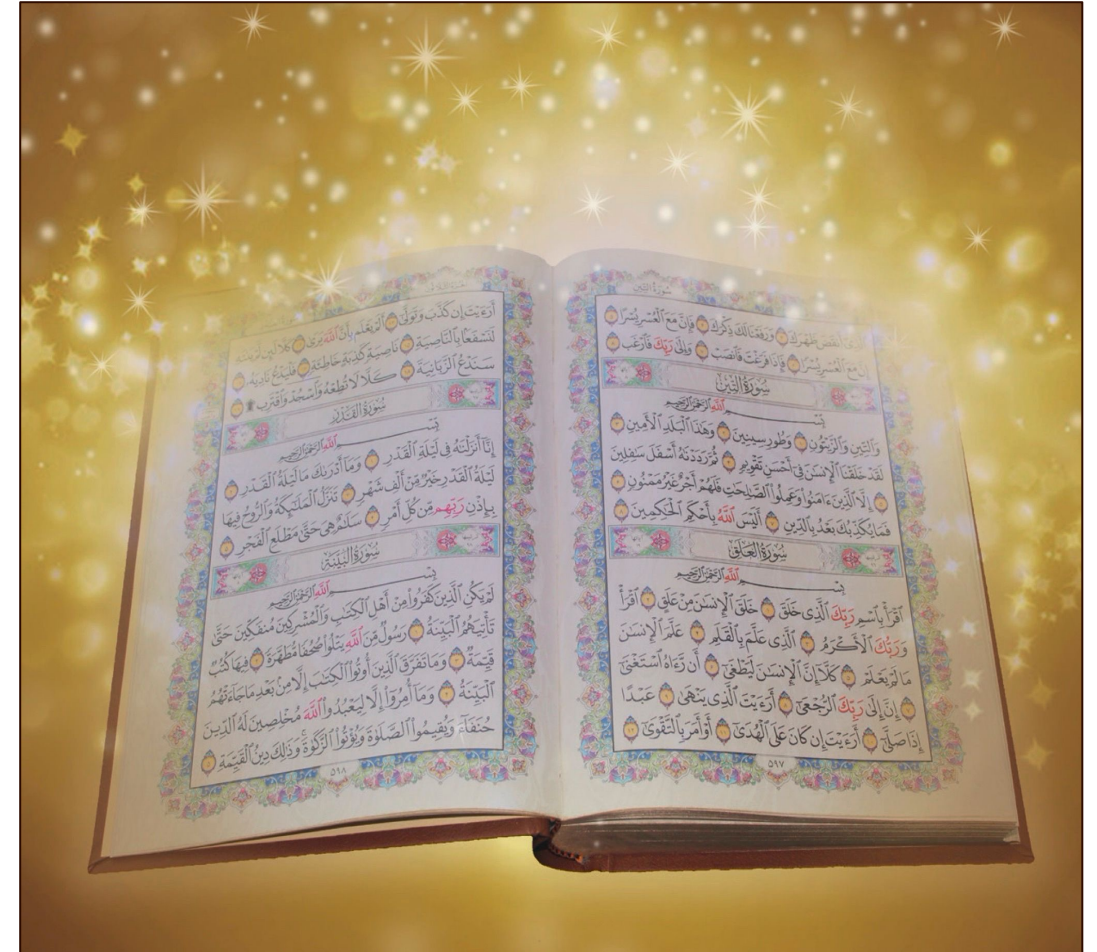 سُورَةُ التِّينِ
ٱلَّذِىٓ أَنقَضَ ظَهْرَكَ ٣ وَرَفَعْنَا لَكَ ذِكْرَكَ ٤ فَإِنَّ مَعَ ٱلْعُسْرِ يُسْرًا ٥
إِنَّ مَعَ ٱلْعُسْرِ يُسْرًا ٦ فَإِذَا فَرَغْتَ فَٱنصَبْ ٧ وَإِلَىٰ رَبِّكَ فَٱرْغَب ٨
سُورَةُ التِّينِ
بِسْمِ ٱللَّهِ ٱلرَّحْمَٰنِ ٱلرَّحِيمِ
وَٱلتِّينِ وَٱلزَّيْتُونِ ١ وَطُورِ سِينِينَ ٢ وَهَٰذَا ٱلْبَلَدِ ٱلْأَمِينِ ٣
لَقَدْ خَلَقْنَا ٱلْإِنسَٰنَ فِىٓ أَحْسَنِ تَقْوِيمٍ ٤ ثُمَّ رَدَدْنَٰهُ أَسْفَلَ سَٰفِلِينَ
٥ إِلَّا ٱلَّذِينَ ءَامَنُوا۟ وَعَمِلُوا۟ ٱلصَّٰلِحَٰتِ فَلَهُمْ أَجْرٌ غَيْرُ مَمْنُونٍ ٦
فَمَا يُكَذِّبُكَ بَعْدُ بِٱلدِّينِ ٧ أَلَيْسَ ٱللَّهُ بِأَحْكَمِ ٱلْحَٰكِمِينَ ٨
سُورَةُ العَلَقِ
بِسْمِ ٱللَّهِ ٱلرَّحْمَٰنِ ٱلرَّحِيمِ
ٱقْرَأْ بِٱسْمِ رَبِّكَ ٱلَّذِى خَلَقَ ١ خَلَقَ ٱلْإِنسَٰنَ مِنْ عَلَقٍ ٢ ٱقْرَأْ
وَرَبُّكَ ٱلْأَكْرَمُ ٣ ٱلَّذِى عَلَّمَ بِٱلْقَلَمِ ٤ عَلَّمَ ٱلْإِنسَٰنَ
مَا لَمْ يَعْلَمْ ٥ كَلَّآ إِنَّ ٱلْإِنسَٰنَ لَيَطْغَىٰٓ ٦ أَن رَّءَاهُ ٱسْتَغْنَىٰٓ
٧ إِنَّ إِلَىٰ رَبِّكَ ٱلرُّجْعَىٰٓ ٨ أَرَءَيْتَ ٱلَّذِى يَنْهَىٰ ٩ عَبْدًا
إِذَا صَلَّىٰٓ ١٠ أَرَءَيْتَ إِن كَانَ عَلَى ٱلْهُدَىٰٓ ١١ أَوْ أَمَرَ بِٱلتَّقْوَىٰٓ ١٢
٥٩٧
أَرَءَيْتَ إِن كَذَّبَ وَتَوَلَّىٰٓ ١٣ أَلَمْ يَعْلَم بِأَنَّ ٱللَّهَ يَرَىٰ ١٤ كَلَّا لَئِن لَّمْ يَنتَهِ
لَنَسْفَعًۢا بِٱلنَّاصِيَةِ ١٥ نَاصِيَةٍ كَٰذِبَةٍ خَاطِئَةٍ ١٦ فَلْيَدْعُ نَادِيَهُۥ ١٧
سَنَدْعُ ٱلزَّبَانِيَةَ ١٨ كَلَّا لَا تُطِعْهُ وَٱسْجُدْ وَٱقْتَرِب ۩ ١٩
سُورَةُ القَدْرِ
بِسْمِ ٱللَّهِ ٱلرَّحْمَٰنِ ٱلرَّحِيمِ
إِنَّآ أَنزَلْنَٰهُ فِى لَيْلَةِ ٱلْقَدْرِ ١ وَمَآ أَدْرَىٰكَ مَا لَيْلَةُ ٱلْقَدْرِ ٢
لَيْلَةُ ٱلْقَدْرِ خَيْرٌ مِّنْ أَلْفِ شَهْرٍ ٣ تَنَزَّلُ ٱلْمَلَٰٓئِكَةُ وَٱلرُّوحُ فِيهَا
بِإِذْنِ رَبِّهِم مِّن كُلِّ أَمْرٍ ٤ سَلَٰمٌ هِىَ حَتَّىٰ مَطْلَعِ ٱلْفَجْرِ ٥
سُورَةُ البَيِّنَةِ
بِسْمِ ٱللَّهِ ٱلرَّحْمَٰنِ ٱلرَّحِيمِ
لَمْ يَكُنِ ٱلَّذِينَ كَفَرُوا۟ مِنْ أَهْلِ ٱلْكِتَٰبِ وَٱلْمُشْرِكِينَ مُنفَكِّينَ حَتَّىٰ
تَأْتِيَهُمُ ٱلْبَيِّنَةُ ١ رَسُولٌ مِّنَ ٱللَّهِ يَتْلُوا۟ صُحُفًا مُّطَهَّرَةً ٢ فِيهَا كُتُبٌ
قَيِّمَةٌ ٣ وَمَا تَفَرَّقَ ٱلَّذِينَ أُوتُوا۟ ٱلْكِتَٰبَ إِلَّا مِنۢ بَعْدِ مَا جَآءَتْهُمُ
ٱلْبَيِّنَةُ ٤ وَمَآ أُمِرُوٓا۟ إِلَّا لِيَعْبُدُوا۟ ٱللَّهَ مُخْلِصِينَ لَهُ ٱلدِّينَ
حُنَفَآءَ وَيُقِيمُوا۟ ٱلصَّلَوٰةَ وَيُؤْتُوا۟ ٱلزَّكَوٰةَ وَذَٰلِكَ دِينُ ٱلْقَيِّمَةِ ٥
٥٩٨